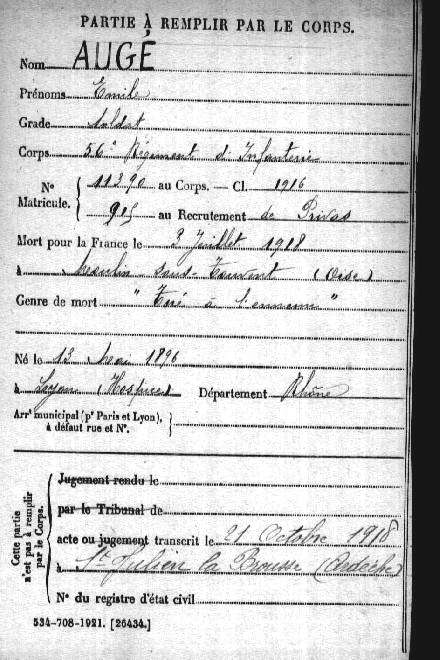 PARTIE À REMPLIR PAR LE CORPS.
Nom AUGÉ
Prénoms Emile
Grade Soldat
Corps 56e Régiment d'Infanterie
N° Matricule. 11390 au Corps. — Cl. 1916
915 au Recrutement de Privas
Mort pour la France le 2 Juillet 1918
à Moulin sous Touvent (Oise)
Genre de mort "Tué à l'ennemi"
Né le 13 Mai 1896
à Lyon (Hospices) Département Rhône
Arrt municipal (pr Paris et Lyon),
à défaut rue et N°.
Cette partie n'est pas à remplir par le Corps.
Jugement rendu le
par le Tribunal de
acte ou jugement transcrit le 21 Octobre 1918
à St Julien la Brousse (Ardèche)
N° du registre d'état civil
534-708-1921. [26434.]